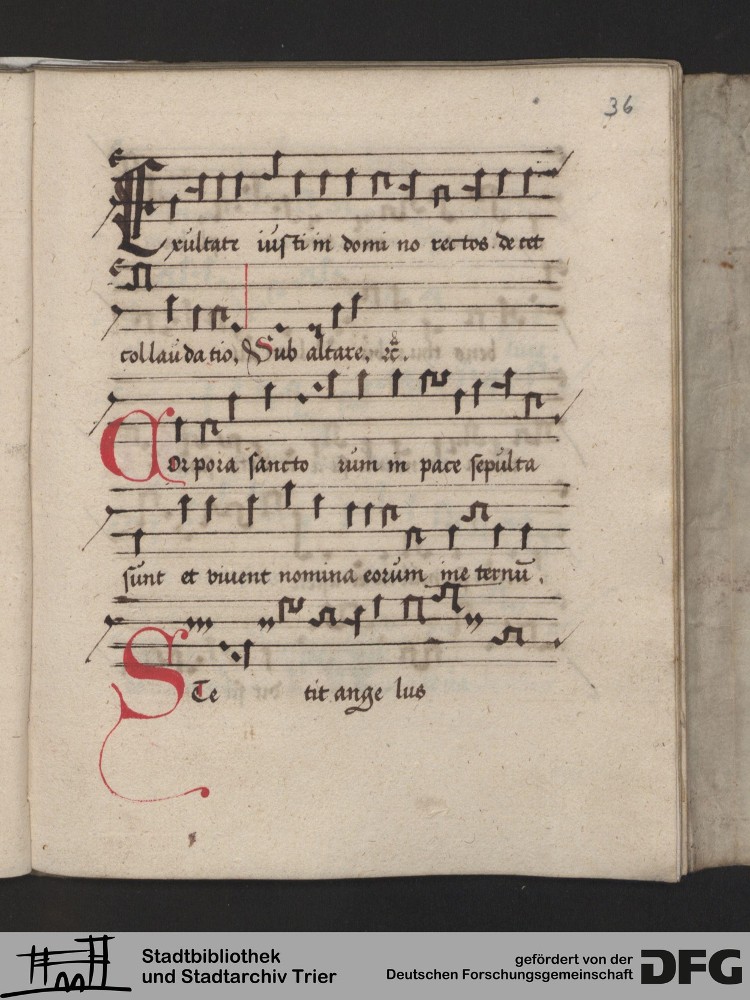 36
Exultate iusti in domi no rectos de cet
collauda tio, Sub altare, &c.
Corpora sancto rum in pace sepulta
sunt et vivent nomina eorum ine ternū.
STe tit ange lus
Stadtbibliothek
und Stadtarchiv Trier
gefördert von der
Deutschen Forschungsgemeinschaft
DFG